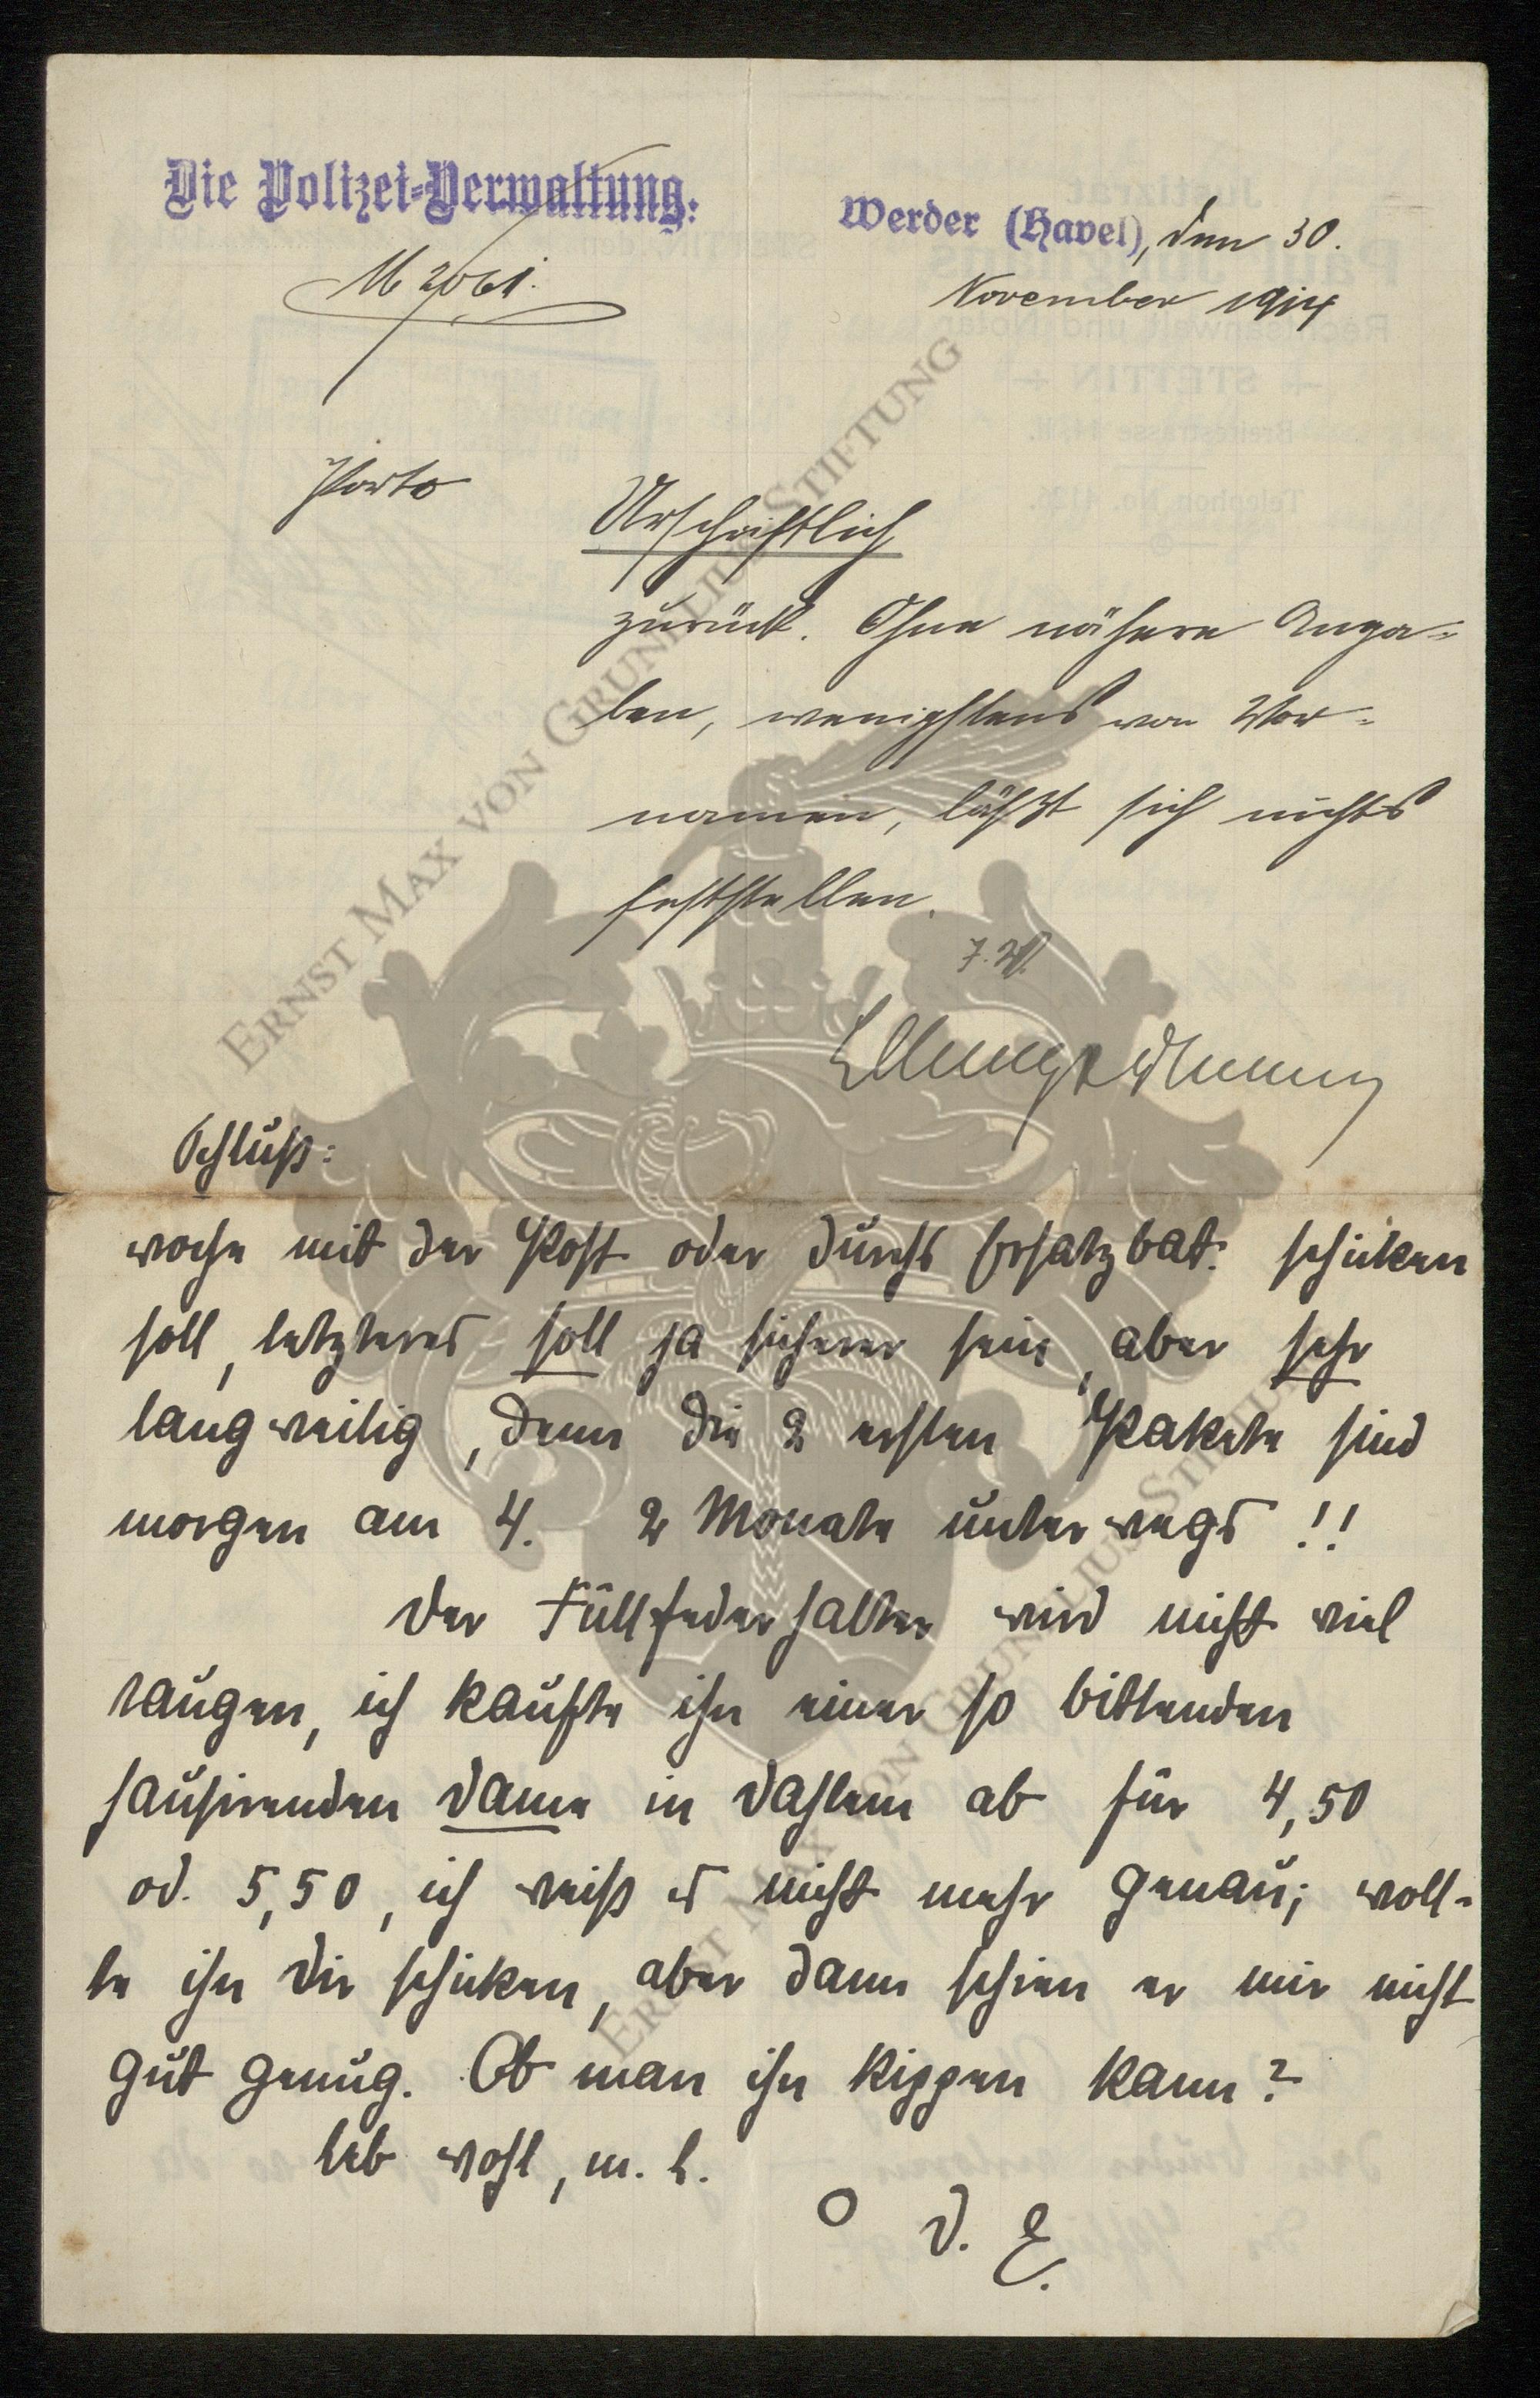 Die Polizei-Verwaltung.
Werder (Havel), den 30.
November 1914
M 2061.
Porto
Urschriftlich
zurück. Ohne nähere Anga=
ben, wenigstens von Vor=
namen, läßt sich nichts
feststellen.
Schluß:
woche mit der Post oder durchs Ersatzbat. schicken
soll, letzteres soll ja sicherer sein, aber sehr
langweilig, denn die 2 ersten Pakete sind
morgen am 4. 2 Monate unterwegs !!
Der Füllfederhalter wird nicht viel
taugen, ich kaufte ihn einer so bittenden
hausirenden Dame in Dahlem ab für 4,50
od. 5,50, ich weiß es nicht mehr genau; woll=
te ihn Dir schicken, aber dann schien er mir nicht
gut genug. Ob man ihn kippen kann?
Leb wohl, m. L.
O D. E.
ERNST MAX VON GRUNELIUS-STIFTUNG
ERNST MAX VON GRUNELIUS-STIFTUNG